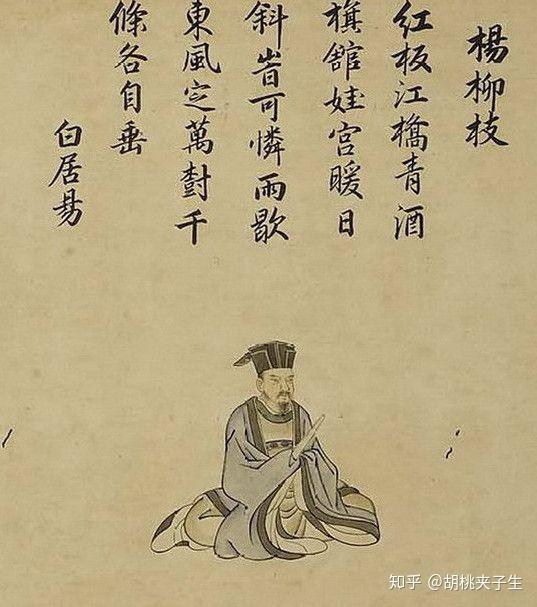 楊柳枝
紅板江橋青酒
旗舘娃宮暖日
斜旹可憐雨歇
東風定萬樹千
條各自垂
白居易
知乎 @胡桃夹子生